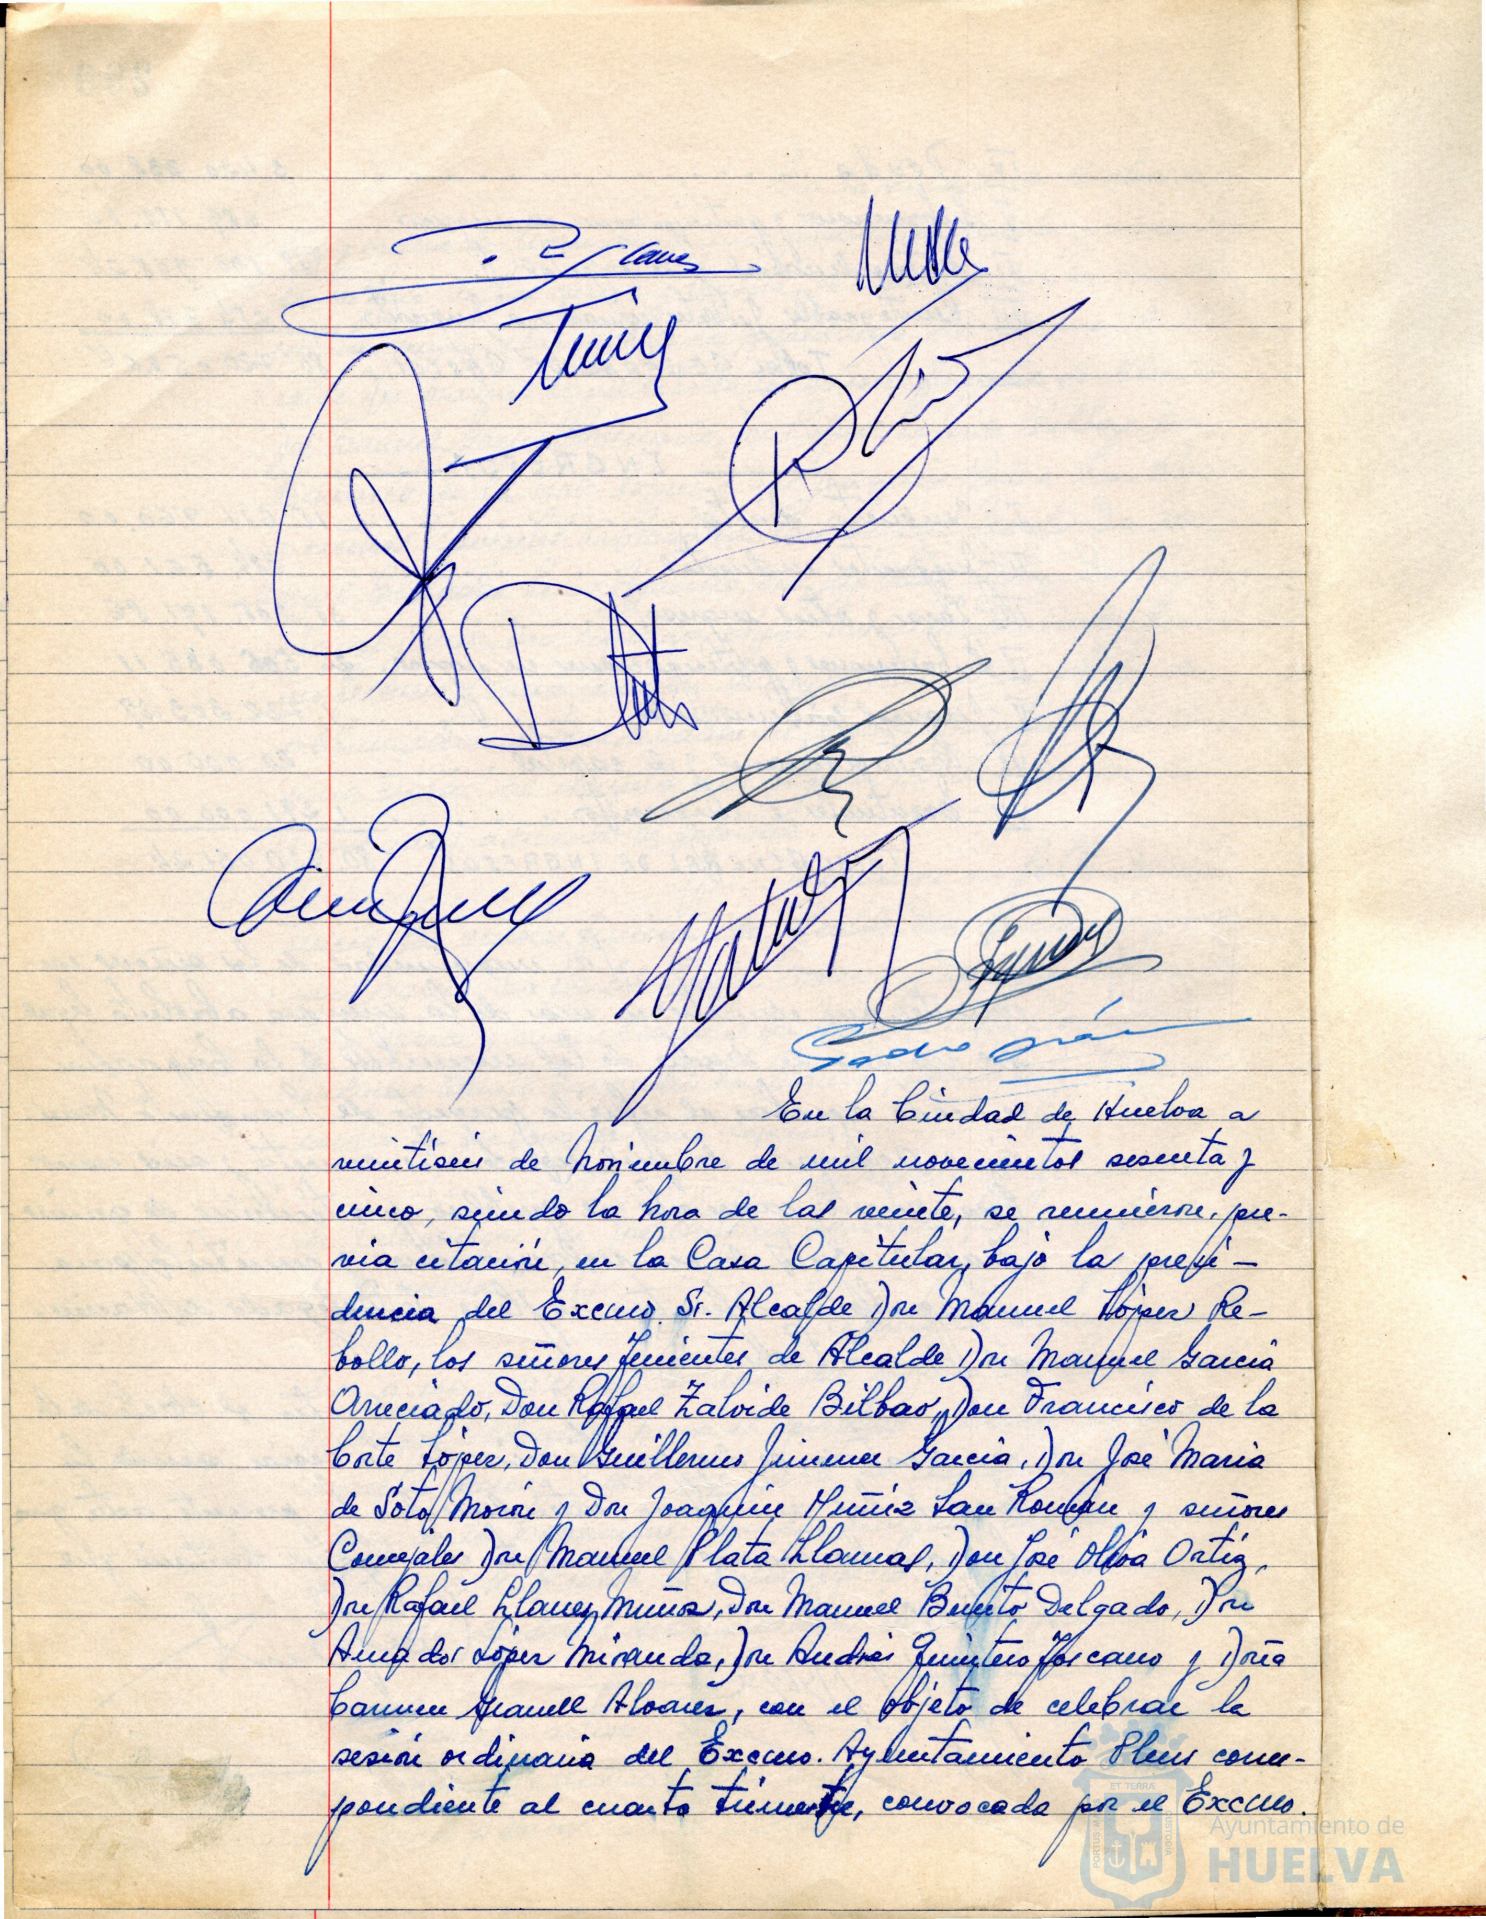 En la Ciudad de Huelva a
veintiseis de Noviembre de mil novecientos sesenta y
cinco, siendo la hora de las veinte, se reunieron, pre-
via citación, en la Casa Capitular, bajo la presi-
dencia del Excmo. Sr. Alcalde Don Manuel López Re-
bollo, los señores Tenientes de Alcalde Don Manuel Garcia
Don Rafael Zalvide Bilbao, Don Francisco de la
Corte López, Don Guillermo Jimenez Garcia, Don José Maria
de Soto Morón y Don Joaquin Muñiz San Román y señores
Concejales Don Manuel Plata Llamas, Don José Oliva Ortiz,
Don Rafael Llanes Muñoz, Don Manuel Benito Delgado, Don
Amador López Miranda, Don Andrés Quintero Toscano y Doña
Carmen Granell Alvarez, con el objeto de celebrar la
sesión ordinaria del Excmo. Ayuntamiento Pleno corres-
pondiente al cuarto trimestre, convocada por el Excmo.
ET TERRA
PORTUS
CUSTODIA
Ayuntamiento de
HUELVA